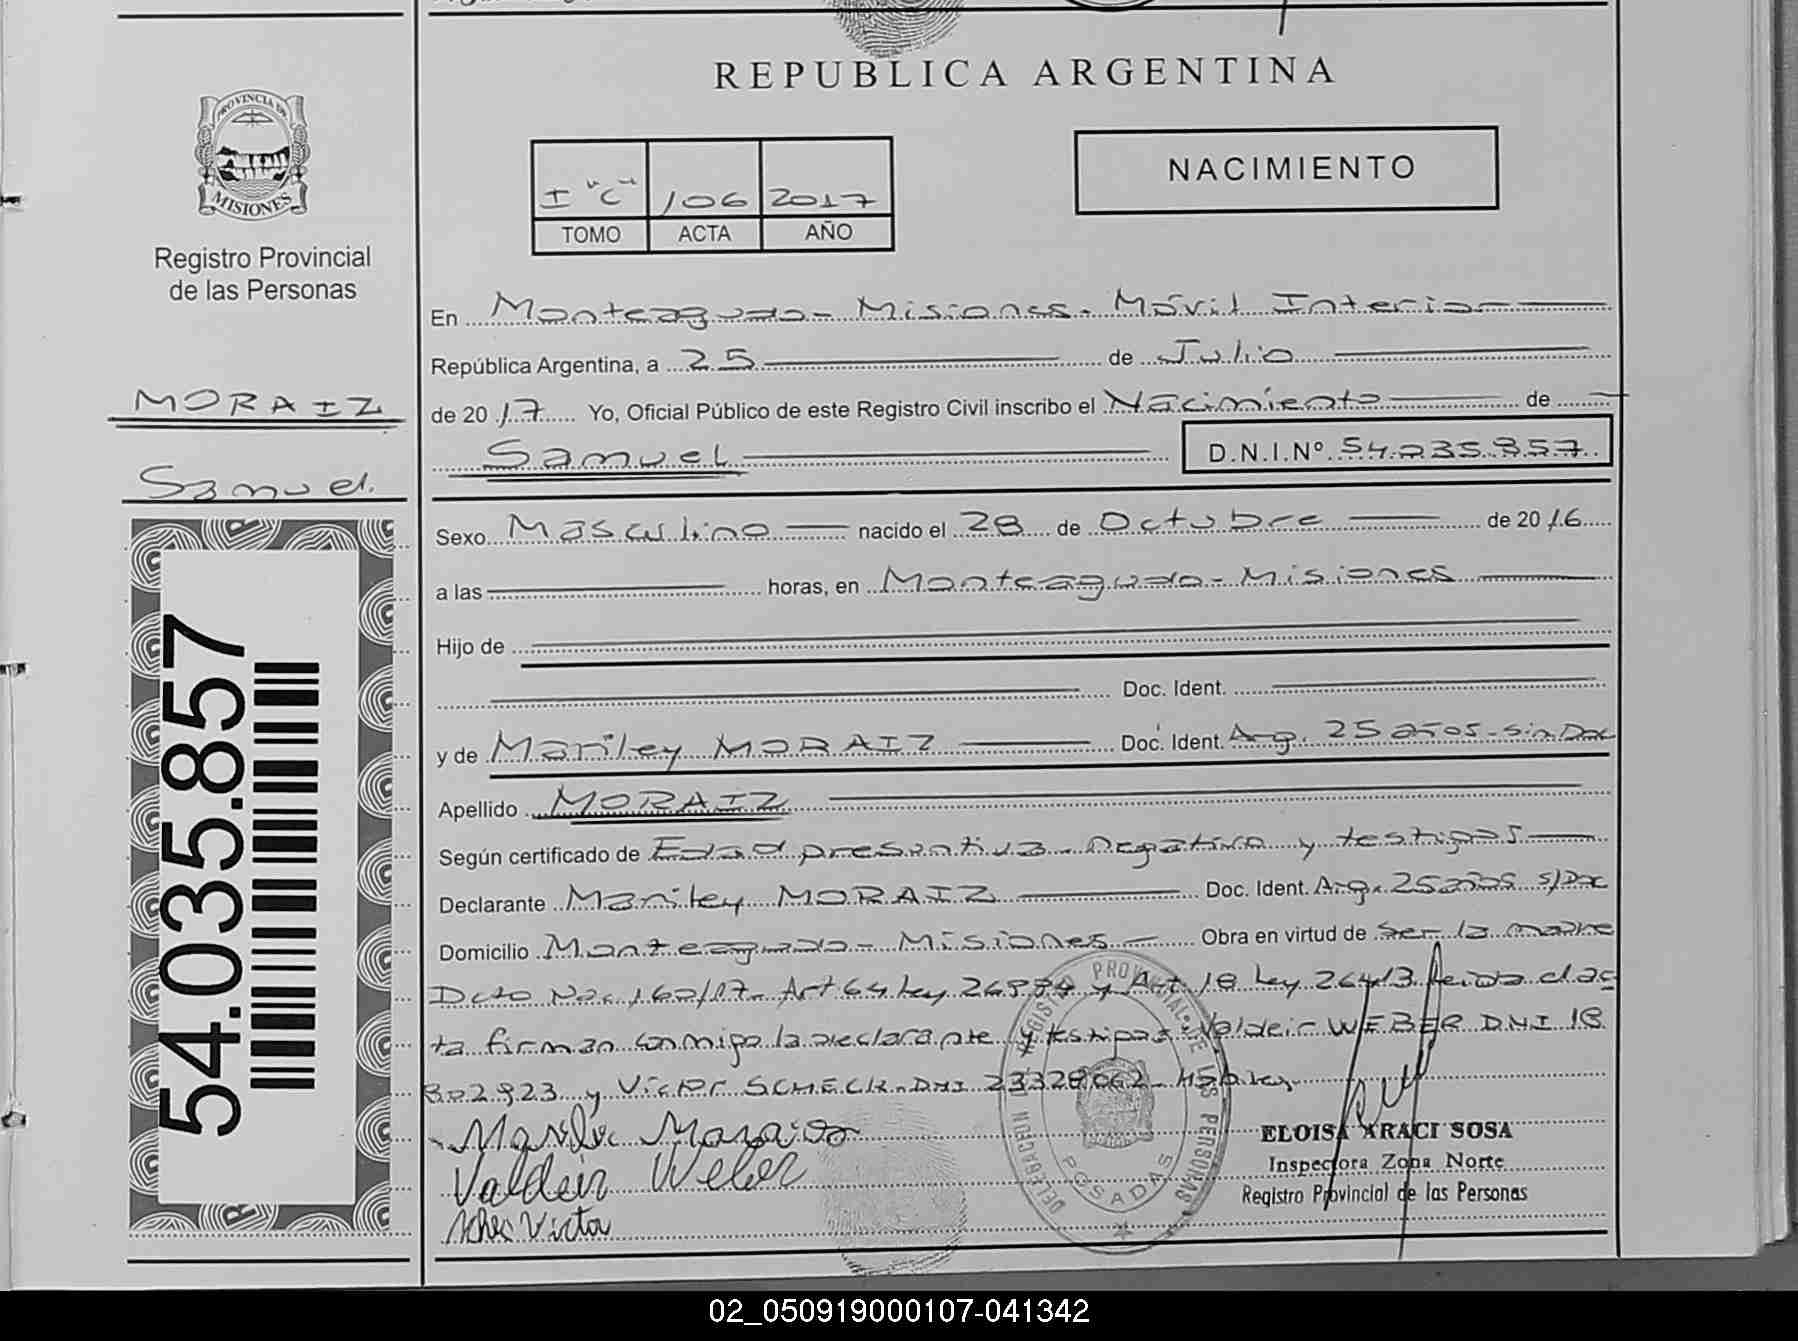 REPUBLICA ARGENTINA
PROVINCIA DE
MISIONES
Registro Provincial
de las Personas
MORAIZ
Samuel.
54.035.857
I "C" 106 2017
TOMO ACTA AÑO
NACIMIENTO
En Monteagudo - Misiones. Móvil Interior
República Argentina, a 25 de Julio
de 2017 Yo, Oficial Público de este Registro Civil inscribo el Nacimiento de
Samuel D.N.I.Nº 54.035.857
Sexo Masculino nacido el 28 de Octubre de 2016
a las horas, en Monteagudo - Misiones
Hijo de
Doc. Ident.
y de Mariley MORAIZ Doc. Ident. Arg. 25 años - sin Doc
Apellido MORAIZ
Según certificado de Edad presuntiva - Negativo y testigos
Declarante Mariley MORAIZ Doc. Ident. Arg. 25 años s/Doc
Domicilio Monteagudo - Misiones Obra en virtud de ser la madre
Dcto Nac. 160/17 - Art 64 Ley 26994 y Art. 18 Ley 26413 leida el ac
ta firman conmigo la declarante y testigos Valdeir WEBER DNI 18
802923 y Victor SCHECK - DNI 23328062 -
Valdeir Weber
Victor
REGISTRO PROVINCIAL DE LAS PERSONAS
DELEGACION
POSADAS
ELOISA ARACI SOSA
Inspectora Zona Norte
Registro Provincial de las Personas
02_050919000107-041342